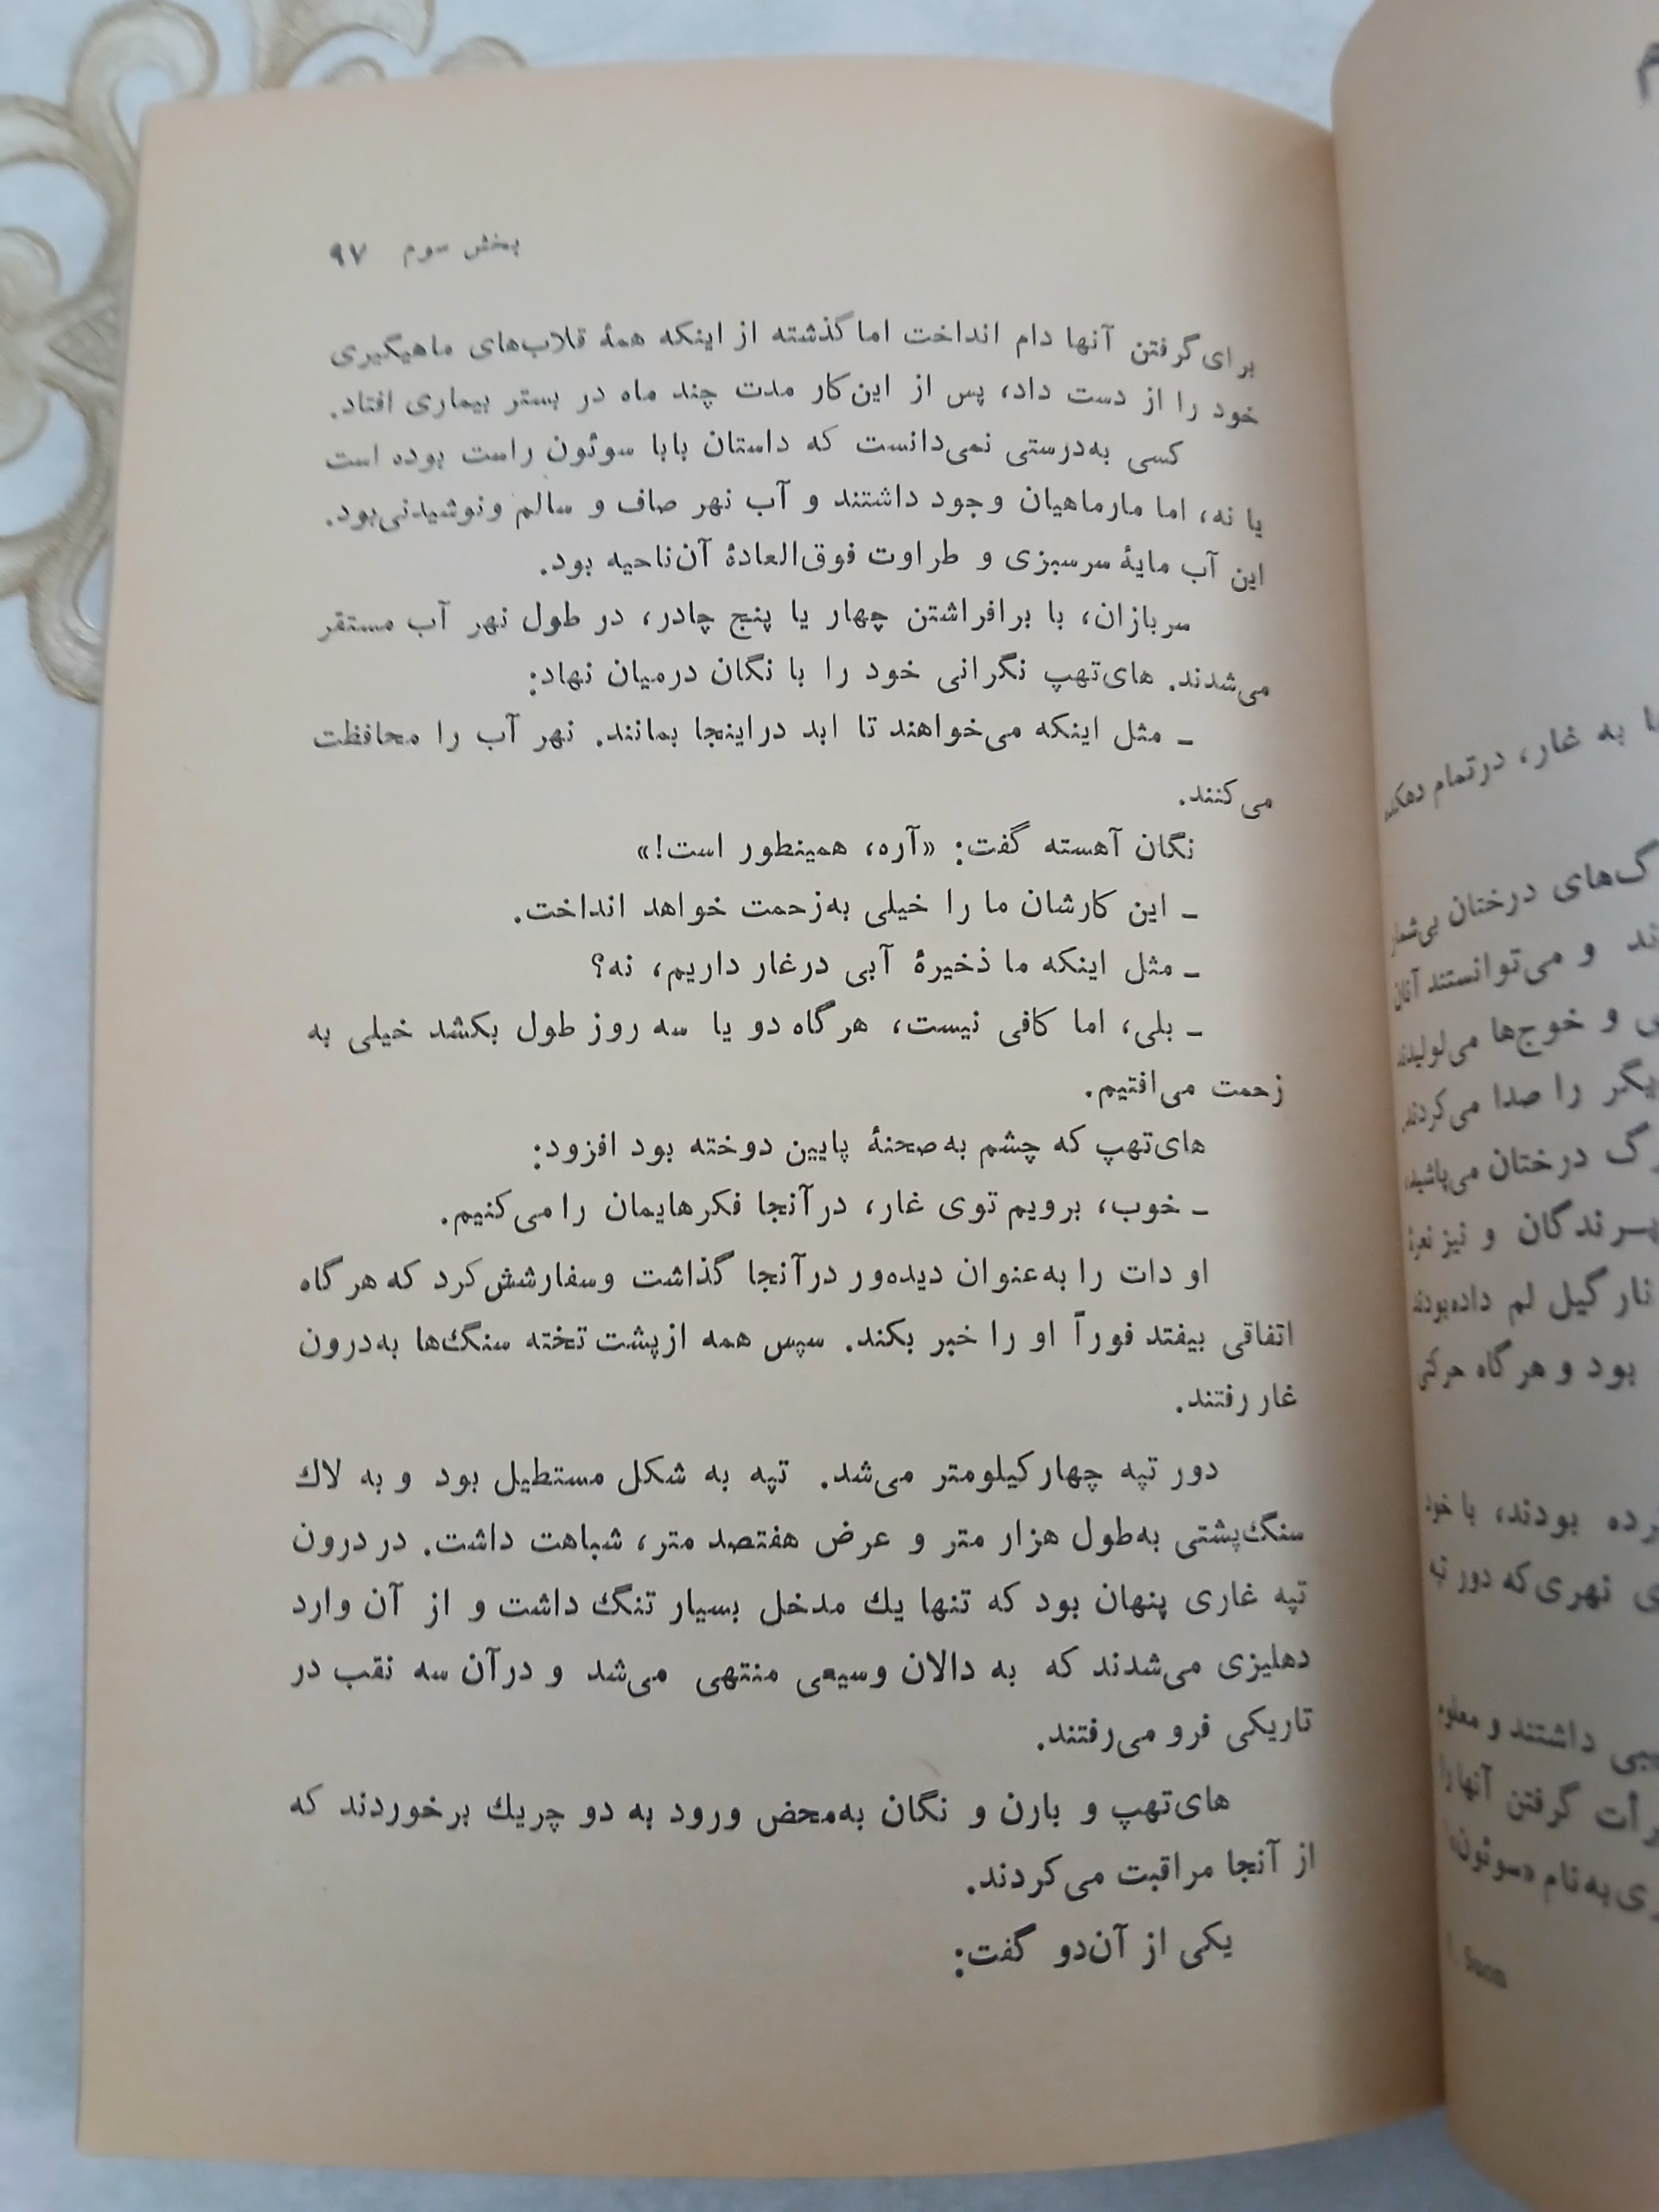 بخش سوم ۹۷
برای گرفتن آنها دام انداخت اما گذشته از اینکه همهٔ قلاب‌های ماهیگیری
خود را از دست داد، پس از این‌کار مدت چند ماه در بستر بیماری افتاد.
کسی به‌درستی نمی‌دانست که داستان بابا سوئون راست بوده است
یا نه، اما مارماهیان وجود داشتند و آب نهر صاف و سالم ونوشیدنی‌بود.
این آب مایهٔ سرسبزی و طراوت فوق‌العادهٔ آن‌ناحیه بود.
سربازان، با برافراشتن چهار یا پنج چادر، در طول نهر آب مستقر
می‌شدند. های‌تهپ نگرانی خود را با نگان درمیان نهاد:
ـ مثل اینکه می‌خواهند تا ابد دراینجا بمانند. نهر آب را محافظت
می‌کنند.
نگان آهسته گفت: «آره، همینطور است!»
ـ این کارشان ما را خیلی به‌زحمت خواهد انداخت.
ـ مثل اینکه ما ذخیرهٔ آبی درغار داریم، نه؟
ـ بلی، اما کافی نیست، هرگاه دو یا سه روز طول بکشد خیلی به
زحمت می‌افتیم.
های‌تهپ که چشم به‌صحنهٔ پایین دوخته بود افزود:
ـ خوب، برویم توی غار، درآنجا فکرهایمان را می‌کنیم.
او دات را به‌عنوان دیده‌ور درآنجا گذاشت وسفارشش‌کرد که هرگاه
اتفاقی بیفتد فوراً او را خبر بکند. سپس همه ازپشت تخته سنگ‌ها به‌درون
غار رفتند.
دور تپه چهارکیلومتر می‌شد. تپه به شکل مستطیل بود و به لاك
سنگ‌پشتی به‌طول هزار متر و عرض هفتصد متر، شباهت داشت. در درون
تپه غاری پنهان بود که تنها یك مدخل بسیار تنگ داشت و از آن وارد
دهلیزی می‌شدند که به دالان وسیعی منتهی می‌شد و درآن سه نقب در
تاریکی فرو می‌رفتند.
های‌تهپ و بارن و نگان به‌محض ورود به دو چریك برخوردند که
از آنجا مراقبت می‌کردند.
یکی از آن‌دو گفت:
به غار، درتمام
درختان
و می‌توانستند آنان
و خوج‌ها می‌لولیدند
را صدا می‌کردند
درختان می‌پاشید،
و نیز نعرهٔ
نارگیل لم داده‌بودند
بود و هرگاه حرکتی
بودند، با خود
نهری‌که دور تپه
داشتند و معلوم
گرفتن آنها را
به‌نام «سوئون»
1. Suon